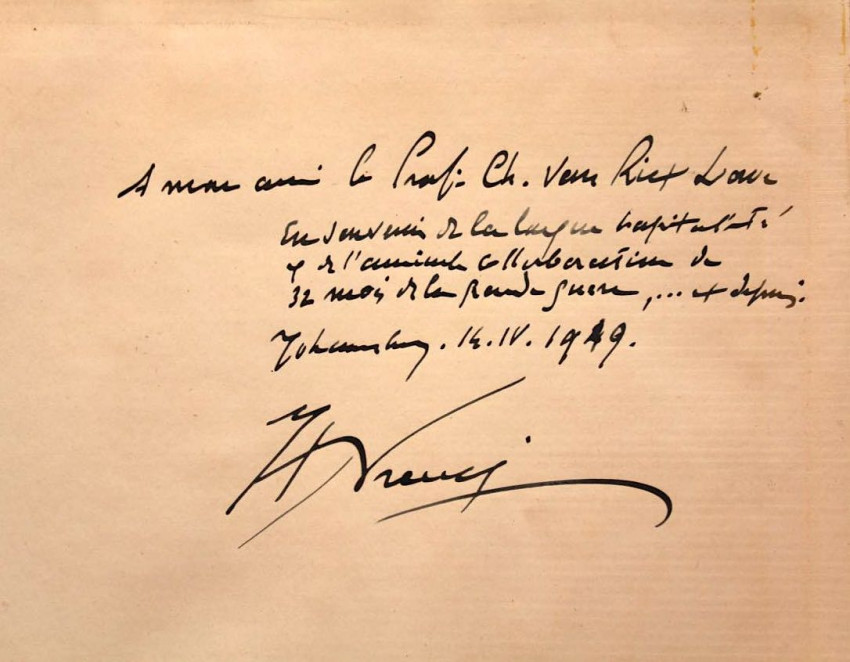 A mon ami le Prof. Ch. Van Riet Lowe
En souvenir de la longue hospitalité
& de l'amicale collaboration de
32 mois de la grande guerre, ... et depuis.
Johannesburg. 14.IV.1949.
H Breuil